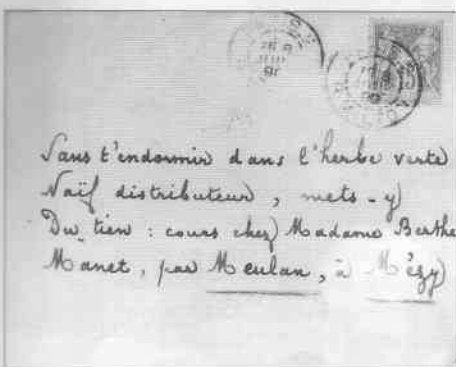 Sans t'endormir dans l'herbe verte
Naïf distributeur, mets-y
Du tien : cours chez Madame Berthe
Manet, par Meulan, à Mézy